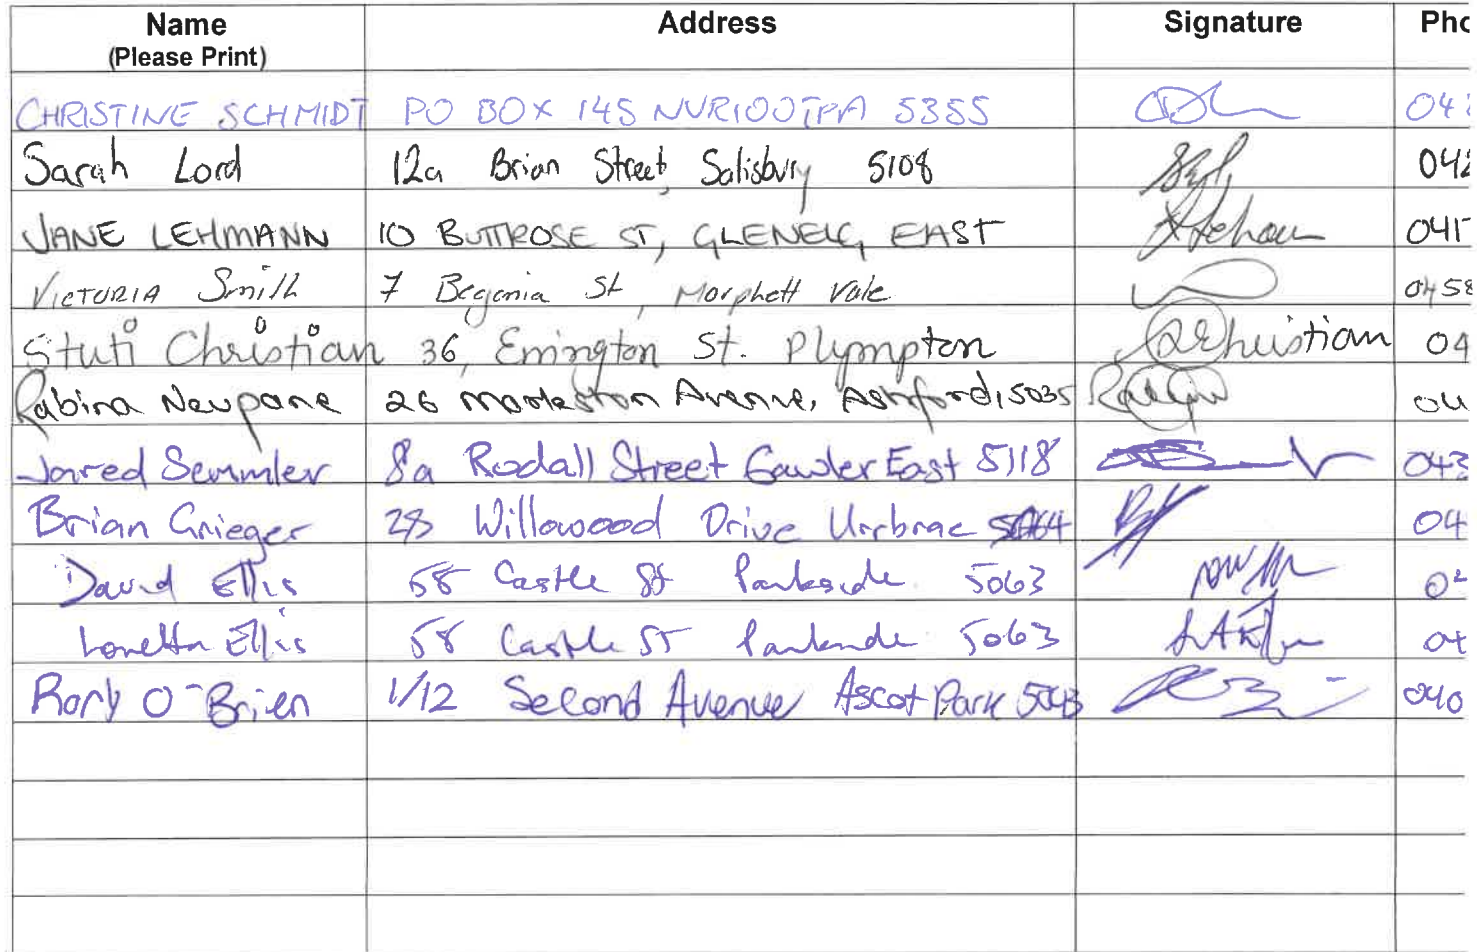 Name Address Signature Pho
(Please Print)
CHRISTINE SCHMIDT PO BOX 145 NURIOOTPA 5355 04
Sarah Lord 12a Brian Street, Salisbury 5108 042
JANE LEHMANN 10 BUTTROSE ST, GLENELG EAST 041
VICTORIA Smith 7 Begonia St, Morphett Vale 0458
Stuti Christian 36, Errington St. Plympton 04
Rabina Neupane 26 Avenue, Ashford, 5035 04
Jared Semmler 8a Rodall Street Gawler East 5118 043
Brian Grieger 28 Willowood Drive Urrbrae 5064 04
David Ellis 58 Castle St Parkside 5063 0
Loretta Ellis 58 Castle ST Parkside 5063 04
Rory O'Brien 1/12 Second Avenue Ascot Park 5043 040